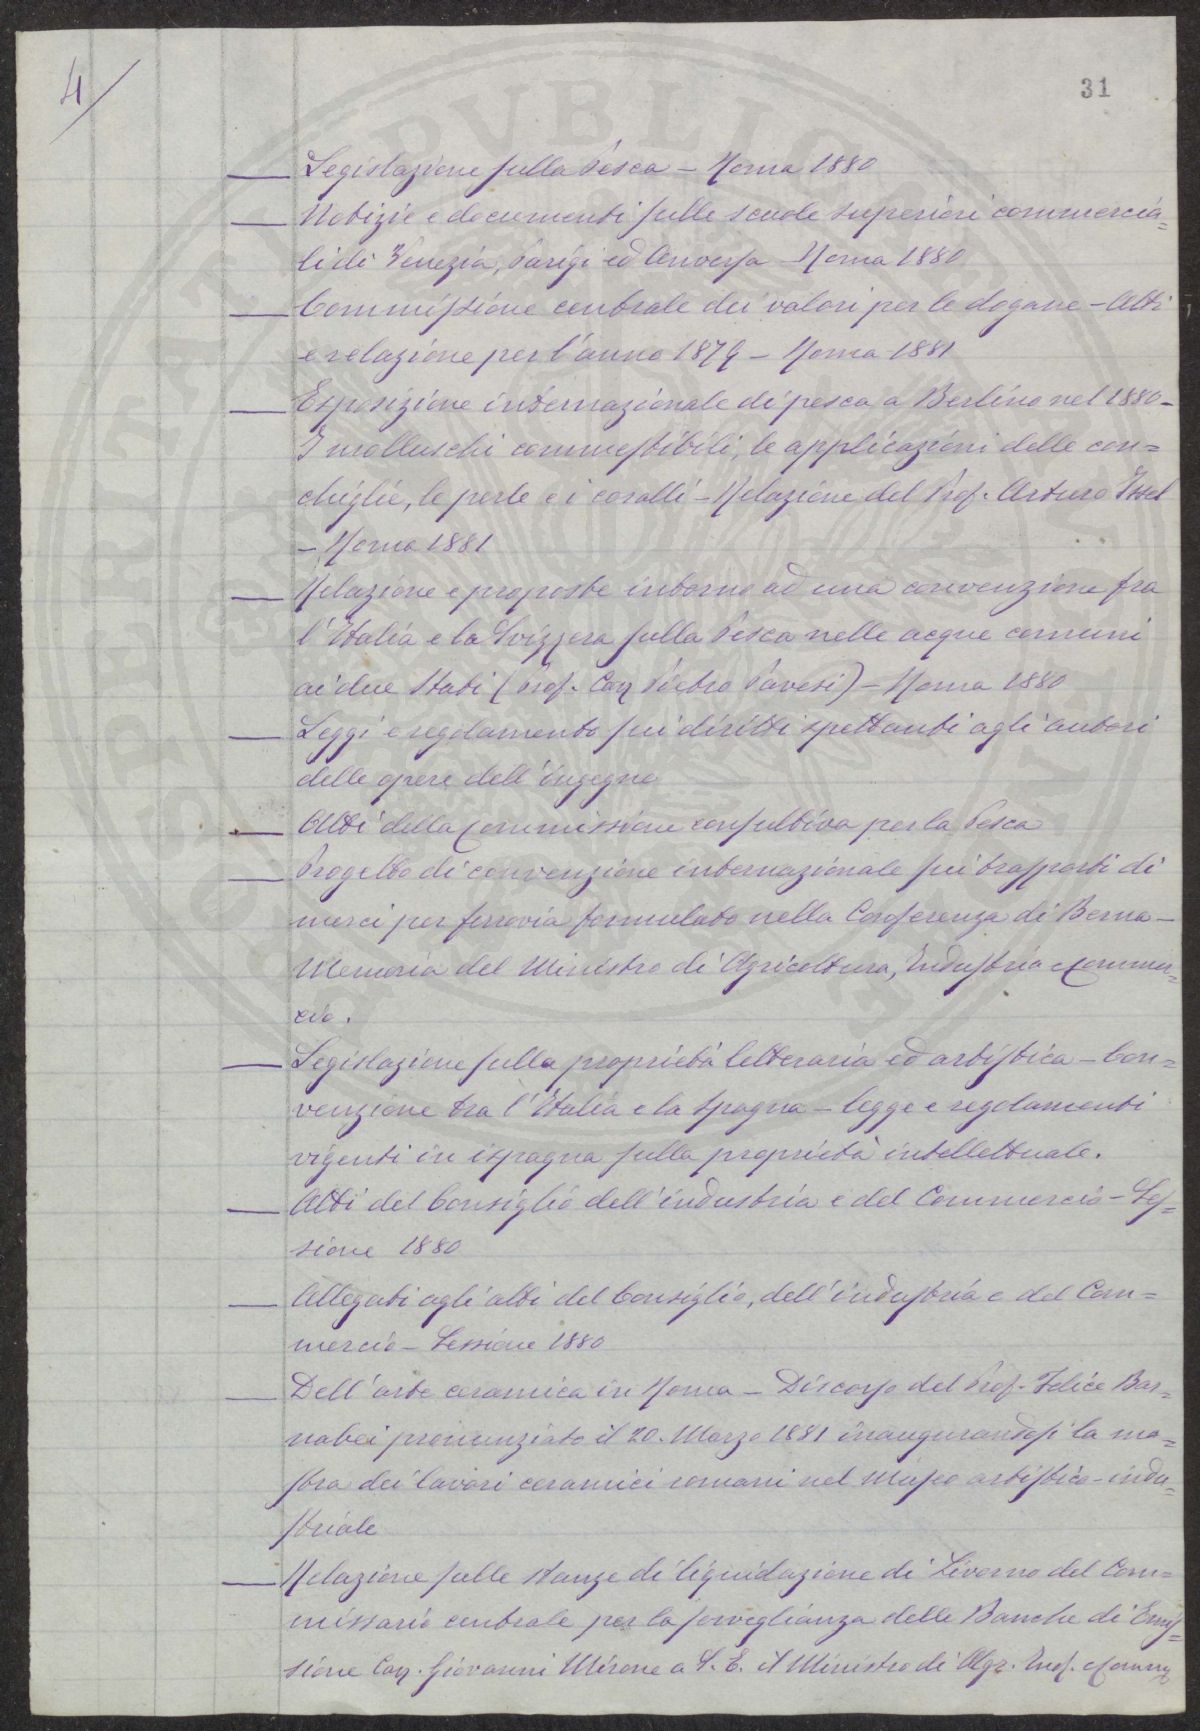 4/
31
— Legislazione sulla Pesca – Roma 1880
— Notizie e documenti sulle scuole superiori commercia=
li di Venezia, Parigi ed Anversa – Roma 1880
— Commissione centrale dei valori per le dogane – Atti
e relazione per l'anno 1879 – Roma 1881
— Esposizione internazionale di pesca a Berlino nel 1880 –
I molluschi commestibili, le applicazioni delle con=
chiglie, le perle e i coralli – Relazione del Prof. Arturo Issel
– Roma 1881
— Relazione e proposte intorno ad una convenzione fra
l'Italia e la Svizzera sulla Pesca nelle acque comuni
ai due Stati (Prof. Cav Pietro Pavesi) – Roma 1880
— Leggi e regolamento sui diritti spettanti agli autori
delle opere dell'ingegno
— Atti della Commissione consultiva per la Pesca
— Progetto di convenzione internazionale sui trasporti di
merci per ferrovia formulato nella Conferenza di Berna –
Memoria del Ministro di Agricoltura, Industria e Commer=
cio.
— Legislazione sulla proprietà letteraria ed artistica – Con=
venzione tra l'Italia e la Spagna – legge e regolamenti
vigenti in ispagna sulla proprietà intellettuale.
— Atti del Consiglio dell'industria e del Commercio – Ses=
sione 1880
— Allegati agli atti del Consiglio, dell'industria e del Com=
mercio – Sessione 1880
— Dell'arte ceramica in Roma – Discorso del Prof. Felice Bar=
nabei pronunziato il 20. Marzo 1881 inaugurandosi la mo=
stra dei lavori ceramici romani nel Museo artistico-indu=
striale
— Relazione sulle stanze di liquidazione di Livorno del Com=
missario centrale per la sorveglianza delle Banche di Emis=
sione Cav. Giovanni Mirone a S. E. il Ministro di Agr. Ind. e Comm